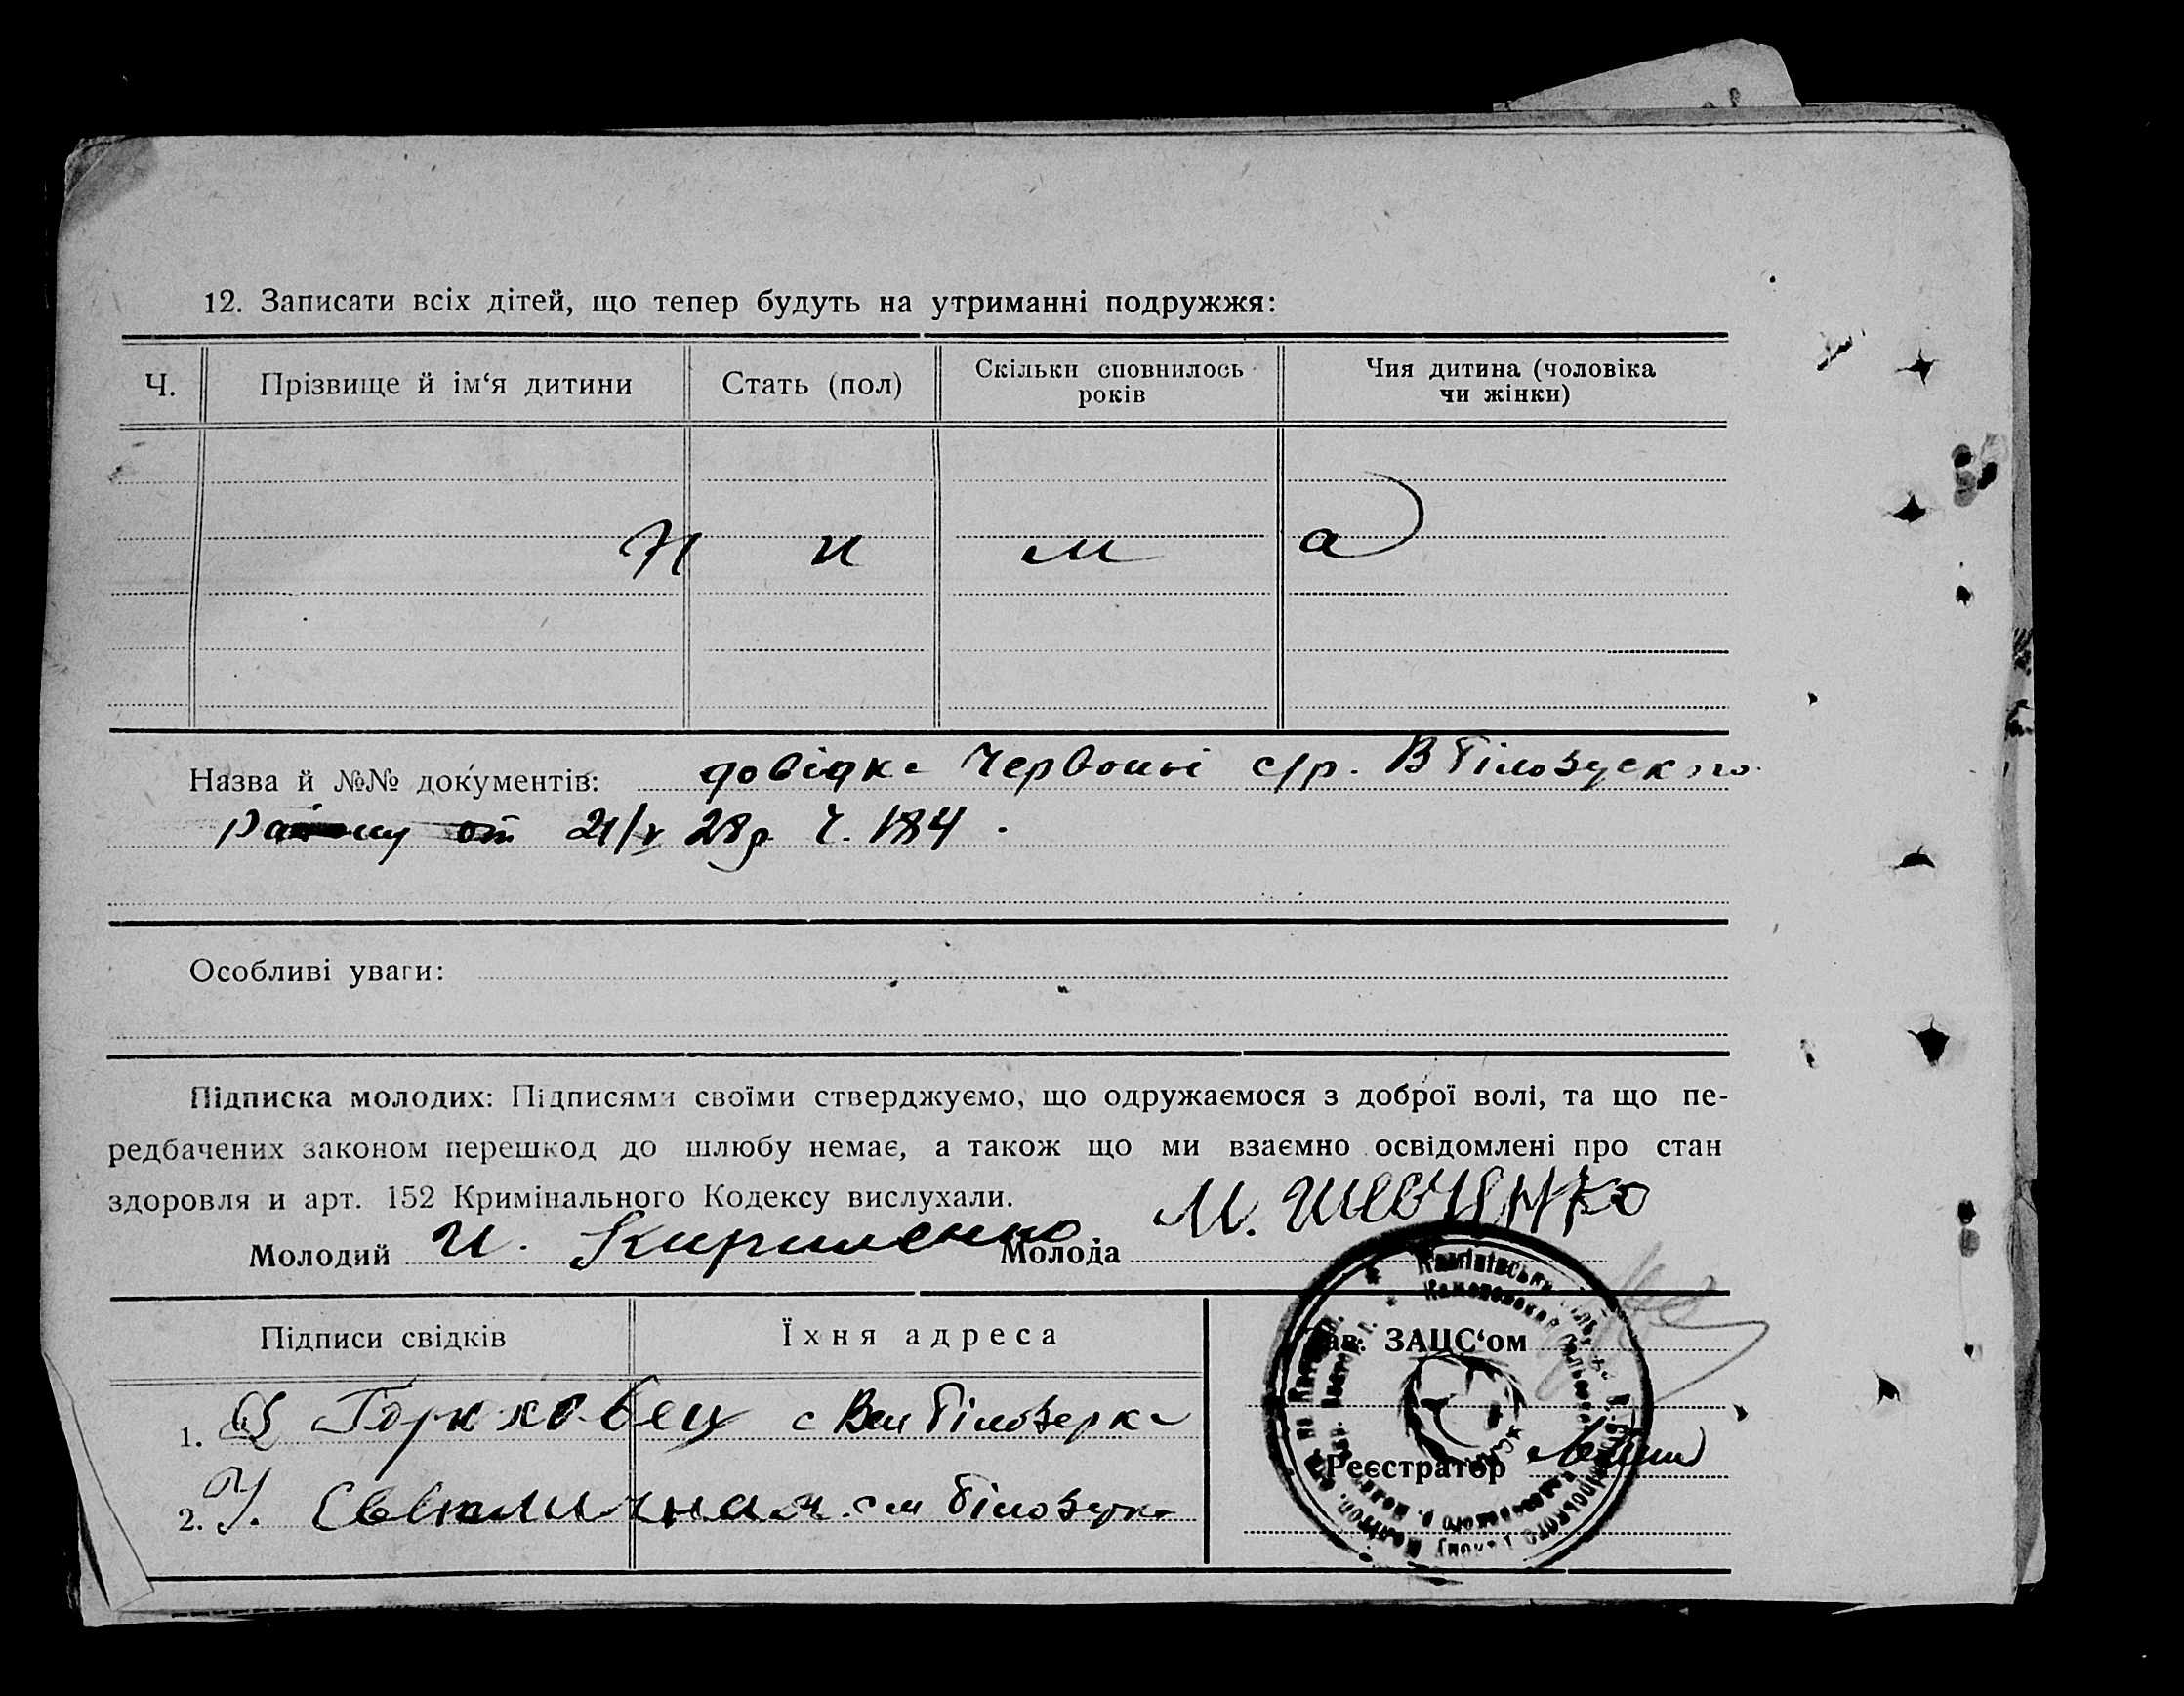 12. Записати всіх дітей, що тепер будуть на утриманні подружжя:
Ч. Прізвище й ім‘я дитини Стать (пол) Скільки сповнилось років Чия дитина (чоловіка чи жінки)
н и м а
Назва й №№ документів: довідка Червоної с/р.
району от 21/V 28р Ч. 184.
Особливі уваги:
Підписка молодих: Підписями своїми стверджуємо, що одружаємося з доброї волі, та що пе-
редбачених законом перешкод до шлюбу немає, а також що ми взаємно освідомлені про стан
здоровля и арт. 152 Кримінального Кодексу вислухали.
Молодий И. Кириленко. Молода М. ШЕВЧЕНКО
Підписи свідків Їхня адреса Зав. ЗАЦС‘ом
1. с Вел Білозерка
Реєстратор
2. Світлична